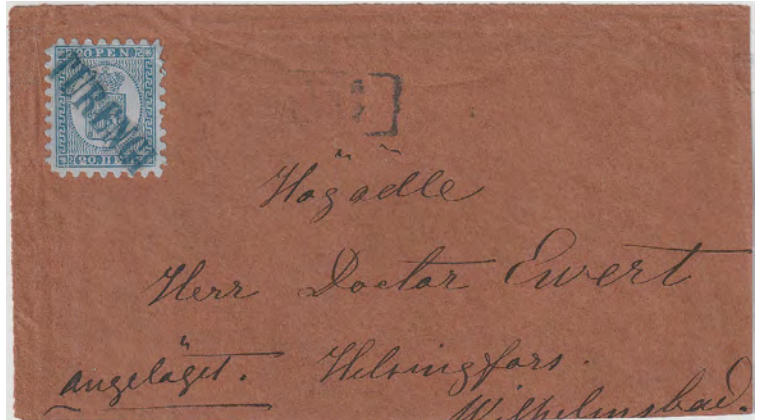 20 PEN.
20. ПЕН.
TURENGI
Högädle
Herr Doctor Ewert
angeläget. Helsingfors.
Wilhelmsbad.